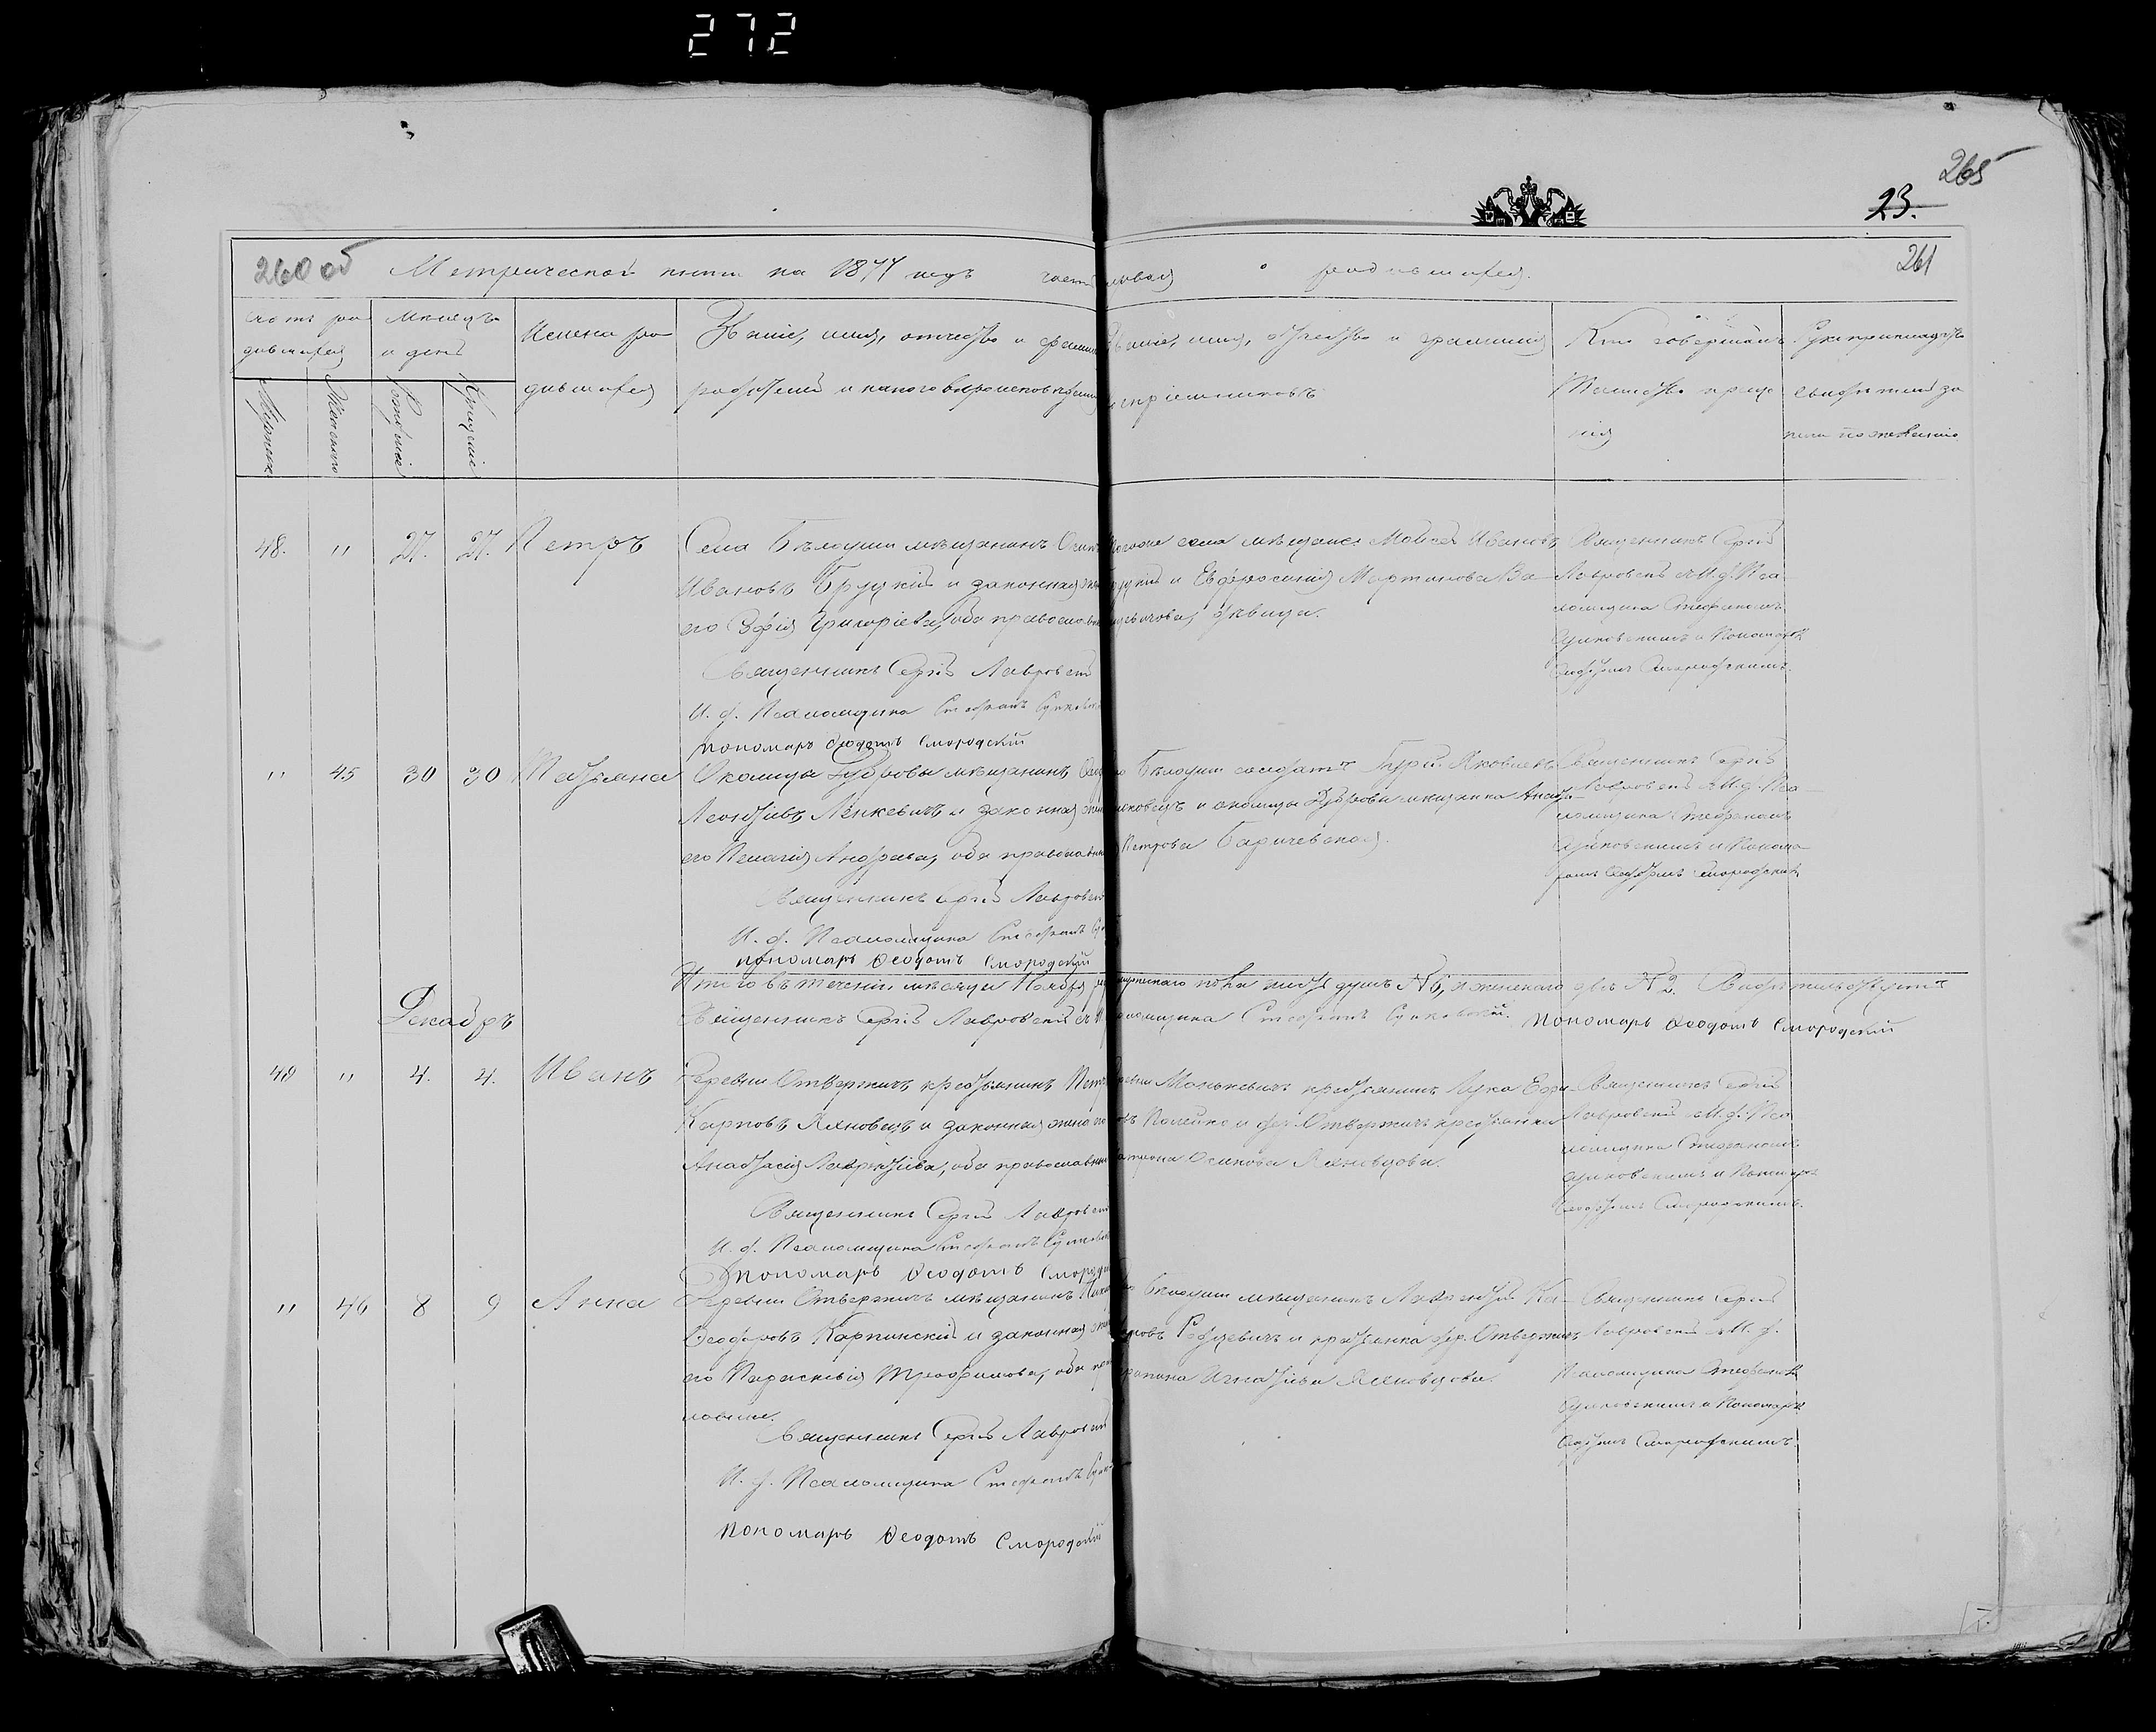 272
265
23.
261
260 об Метрической книги на 1877 годъ часть первая о родившихся.
Счетъ ро
дившихся
Мужеска
Женскаго
Мѣсяцъ
и день
Рожденія
Крещенія
Имена ро
дившихся
Званіе, имя, отчество и фамилія
родителей и какого вѣроисповѣданія
Званіе, имя, отчество и фамилія
воспріемниковъ
Кто совершалъ
Таинство креще
нія
Рукоприкладство
свидѣтелей за
писи по желанію
48. " 27. 27. Петръ
Села Бѣлоуши мѣщанинъ
Ивановъ Бруцкій и законная жена
его Софія Григоріева, оба православные
Священникъ Сергій Лавровскій
И. д. Псаломщика Стефанъ
пономарь Ѳеодотъ Смородскій
того же села мѣщане: Моисей Ивановъ
Бруцкій и Евфросинія Мартинова
дѣвица.
Священникъ Сергій
Лавровскій съ И. д. Пса
ломщика Стефаномъ
и Пономаремъ
Ѳеодотомъ Смородскимъ.
" 45 30 30 Татьяна
Околицы Дубровы мѣщанинъ
Леонтіевъ Ленкевичъ и законная жена
его Пелагія Андреева, оба православные
Священникъ Сергій Лавровскій
И. д. Псаломщика Стефанъ
пономарь Ѳеодотъ Смородскій
Бѣлоуши солдатъ Гурій Яковлевъ
и околицы Дубровы мѣщанка
Петрова Баричевская.
Священникъ Сергій
Лавровскій съ И. д. Пса
ломщика Стефаномъ
и Понома
ремъ Ѳеодотомъ Смородскимъ
Итого въ теченіи мѣсяца Ноября мужескаго пола душъ № 6, и женскаго двѣ № 2. Свидѣтельствуютъ
Священникъ Сергій Лавровскій съ И. д. Псаломщика Стефанъ пономарь Ѳеодотъ Смородскій
Декабрь
49 " 4. 4. Иванъ
Деревни Отвержичъ крестьянинъ Петръ
Карповъ Яхновецъ и законная жена его
Анастасія Лаврентіева, оба православные
Священникъ Сергій Лавровскій
И. д. Псаломщика Стефанъ
пономарь Ѳеодотъ Смородскій
деревни Манькевичъ крестьянинъ Лука
и дер. Отвержичъ крестьянка
Осипова Яхновцова.
Священникъ Сергій
Лавровскій съ И. д. Пса
ломщика Стефаномъ
и Пономаремъ
Ѳеодотомъ Смородскимъ.
" 46 8 9 Анна
Деревни Отвержичъ мѣщанинъ
Ѳеодоровъ Карпинскій и законная жена
его Параскевія Трофимова, оба право
славные.
Священникъ Сергій Лавровскій
И. д. Псаломщика Стефанъ
пономарь Ѳеодотъ Смородскій
Бѣлоуши мѣщанинъ Лаврентій
и крестьянка дер. Отвержичъ
Игнатіева Яхновцова.
Священникъ Сергій
Лавровскій съ И. д.
Псаломщика Стефаномъ
и Пономаремъ
Ѳеодотомъ Смородскимъ.